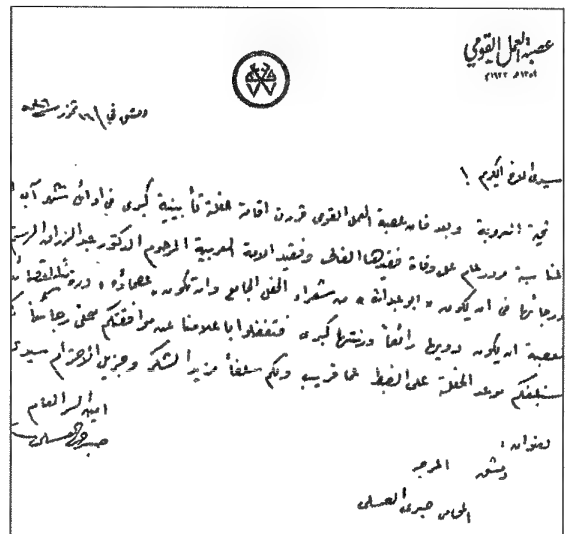 عصبة العمل القومي
دمشق في ١٦ تموز سنة
سيدي الاخ الكريم !
تحية العروبة وبعد فان عصبة العمل القومي قررت اقامة حفلة تأبينية كبرى في اوائل شهر آب
لمناسبة مرور عام على وفاة فقيدها الغالي وفقيد الامة العربية المرحوم الدكتور عبد الرزاق
ورجائها في ان يكون « ابو عبدالله » من شعراء الحفل الجامع وان تكون « عصماؤه »
العصبة ان يكون دويها رائعاً ورنتها كبرى فتفضلوا باعلامنا عن موافقتكم
سنبلغكم موعد الحفلة على الضبط عما قريب ولكم سلفاً مزيد الشكر وجزيل الاحترام سيدي
امين السر العام
صبري العسلي
العنوان :
دمشق المرجه
المحامي صبري العسلي